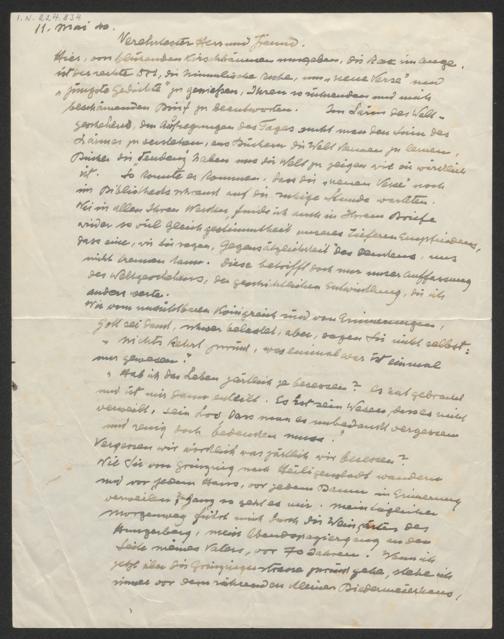 I.N. 224.834
11. Mai 40.
Verehrtester Herr und Freund.
Hier, von blühenden Kirschbäumen umgeben, die Rax im Auge,
ist der rechte Ort, die himmlische Ruhe, um "neue Verse" und
"jüngste Gedichte" zu genießen, Ihren so rührenden und mich
beschämenden Brief zu beantworten. Im Lärm des Welt-
geschehens, den Aufregungen des Tages sucht man den Sinn des
Lärmes zu verstehen, aus Büchern die Welt kennen zu lernen,
Bücher die Tendenz haben uns die Welt zu zeigen wie sie wirklich
ist. So konnte es kommen, dass die "neuen Verse" noch
im Bibliotheksschrank auf die ruhige Stunde warteten.
Wie in allen Ihren Werken, finde ich auch in Ihrem Briefe
wieder so viel Gleichgestimmtheit unseres tieferen Empfindens,
dass eine, wie Sie sagen, Gegensätzlichkeit des Denkens, uns
nicht trennen kann. Diese betrifft doch nur unser Auffassung
des Weltgeschehens, der geschichtlichen Entwicklung, die ich
anders werte.
Wir vom unsichtbaren Königreich sind von Erinnerungen,
Gott sei Dank, schwer belastet, aber, sagen Sie nicht selbst:
"nichts kehrt zurück, was einmal war ist einmal
nur gewesen".
"Hab ich das Leben zärtlich je besessen? Es hat gebrannt
und ist mir dann enteilt. Es ist sein Wesen, dass es nicht
verweilt, sein Los dass man es unbedankt vergessen
und ewig doch bedenken muss."
Vergessen wir wirklich was zärtlich wir besessen?
Wie Sie von Grinzing nach Heiligenstadt wandern
und vor jedem Haus, vor jedem Baum in Erinnerung
verweilen, so geht es mir. Mein täglicher
Morgenweg führt mich durch die Weingärten des
Hungerberg, mein Abendspaziergang an der
Seite meines Vaters, vor 70 Jahren. Wenn ich
jetzt über die Grinzingerstrasse zurück gehe, stehe ich
immer vor dem rührenden kleinen Biedermeierhaus,